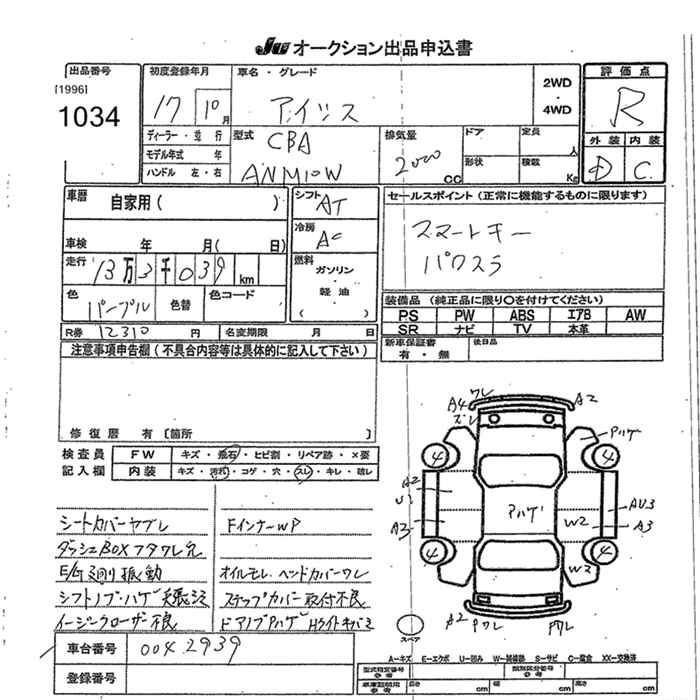 JU オークション出品申込書
出品番号
[1996]
1034
初度登録年月
17 10月
車名・グレード
アイシス
2WD
・
4WD
評価点
R
外装 内装
D C
ディーラー・並行
モデル年式 年
ハンドル 左・右
型式
CBA
ANM10W
排気量
2000
CC
ドア
定員
人
形状
積載
Kg
車歴
自家用( )
車検 年 月( 日)
走行
13万3千039 km
色
パープル
色替
色コード
シフト
AT
冷房
AC
燃料
ガソリン
・
軽油
( )
R券 12310 円
名変期限 月 日
セールスポイント(正常に機能するものに限ります)
スマートキー
パワスラ
装備品(純正品に限り○を付けてください)
PS PW ABS エアB AW
SR ナビ TV 本革
新車保証書
有・無
後日品
注意事項申告欄(不具合内容等は具体的に記入して下さい)
修復歴 有〔箇所 〕
検査員
記入欄
FW キズ・飛石・ヒビ割・リペア跡・×要
内装 キズ・汚れ・コゲ・穴・スレ・キレ・破レ
シートカバーヤブレ
ダッシュBOXフタワレ
E/G廻り振動
シフトノブ・ハゲ
イージークローザー不良
FインナーWP
オイルモレ ヘッドカバーワレ
ステップカバー取付不良
ドアノブアハゲ
車台番号 0042939
登録番号
ワレ
A4
ズレ
A2
アハゲ
4
4
A2
U1
A3
アハゲ
W2
AU3
A3
4
4
W2
A2
Pワレ
スペア
A−キズ E−エクボ U−凹み W−補修跡 S−サビ C−腐食 XX−交換済
型式指定番号
類別区分番号
長さ cm
幅 cm
高さ cm